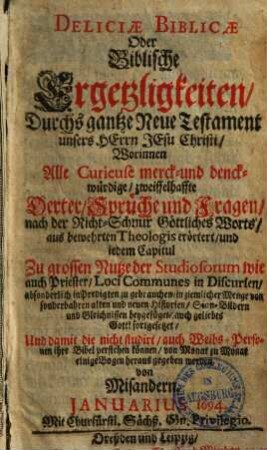 DELICIÆ BIBLICÆ
Oder
Biblische
Ergetzligkeiten/
Durchs gantze Neue Testament
unsers HErrn JEsu Christi/
Worinnen
Alle Curieuse merck-und denck-
würdige/zweiffelhaffte
Oerter/Sprüche und Fragen/
nach der Richt-Schnur Göttliches Worts/
aus bewehrten Theologis erörtert/und
jedem Capitul
Zu grossen Nutze der Studiosorum wie
auch Priester/Loci Communes in Discursen/
absonderlich in Predigten zu gebrauchen in ziemlicher Menge von
sonderbahren alten und neuen Historien/Sinn-Bildern
und Gleichnißen beygefüget/auch geliebts
Gott! fortgesetzet/
Und damit die nicht studirt/auch Weibs-Perso-
nen ihre Bibel verstehen können/von Monat zu Monat
einige Bogen heraus gegeben
von
Misandern.
JANUARIUS 1694.
Mit Churfürstl. Sächß. Gn. Privilegio.
Dreßden und Leipzig/